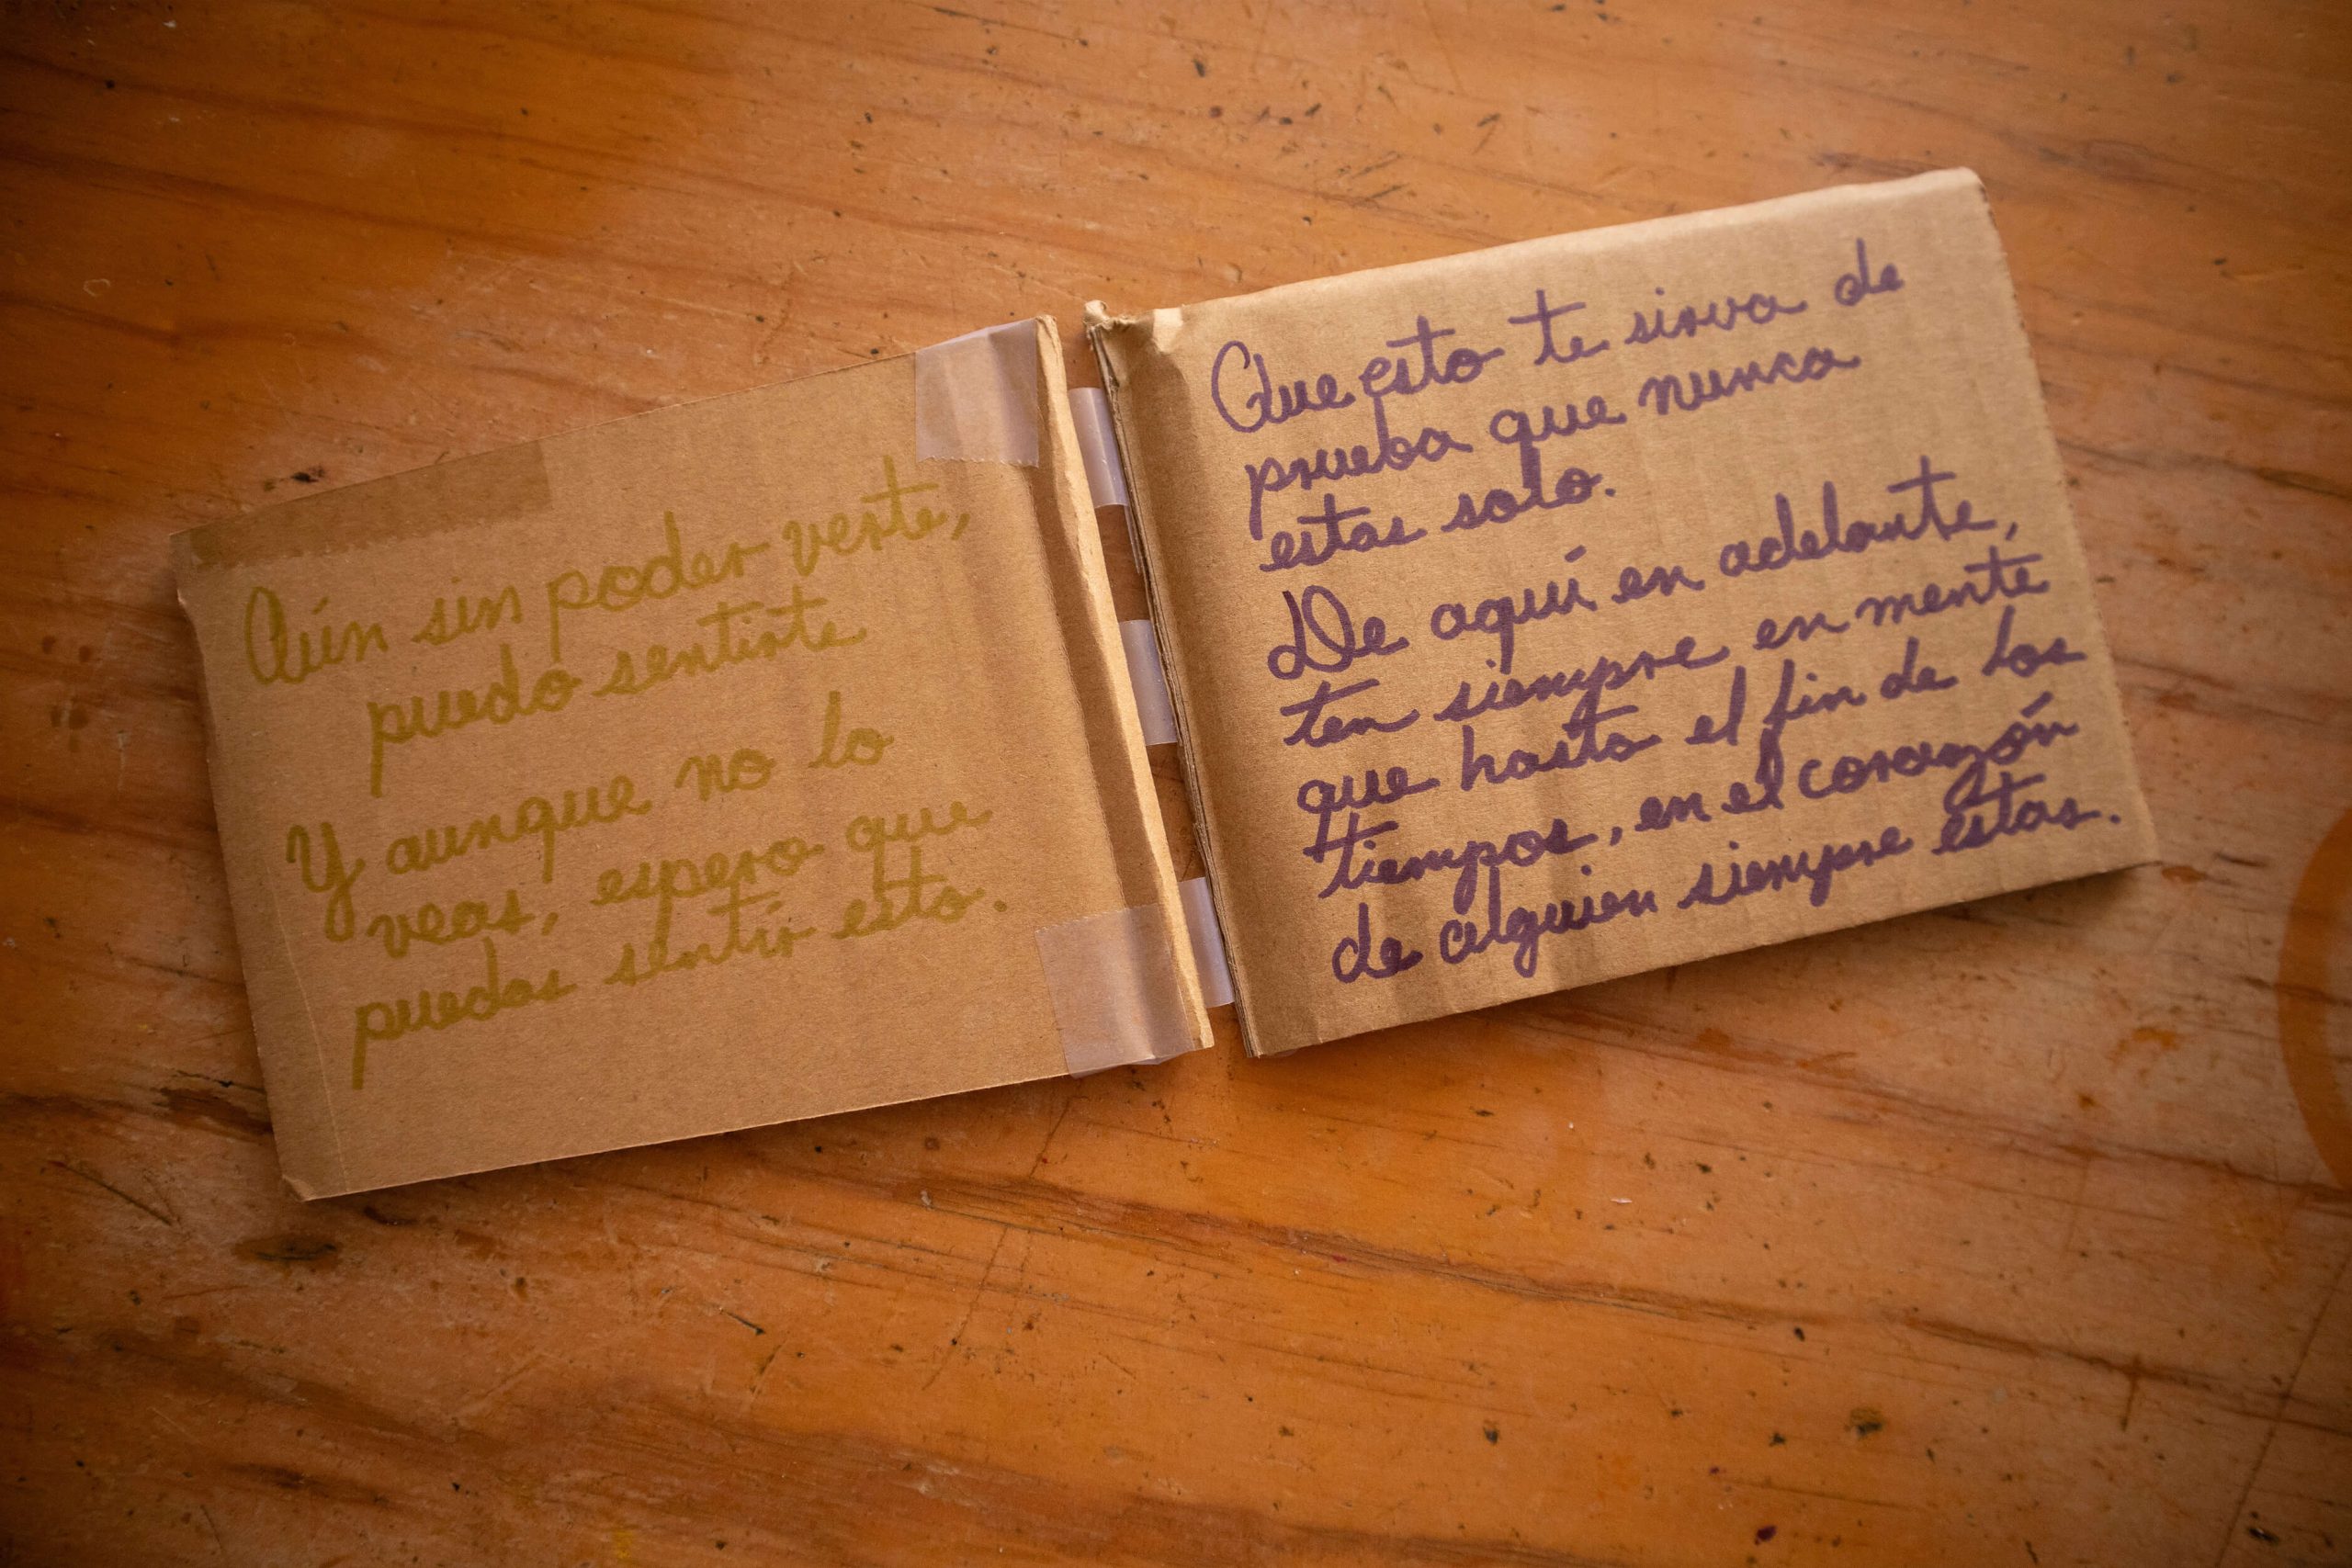 Aún sin poder verte,
puedo sentirte
Y aunque no lo
veas, espero que
puedas sentir esto.
Que esto te sirva de
prueba que nunca
estas solo.
De aquí en adelante,
ten siempre en mente
que hasta el fin de los
tiempos, en el corazón
de alguien siempre estas.